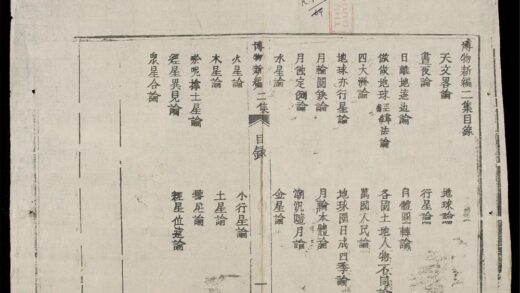 博物新編二集目錄
天文畧論 地球論
晝夜論 行星論
日離地遠近論 自體圜轉論
地球經緯法論 各國土地人物不同論
四大洲論 萬國人民論
地球亦行星論 地球圜日成四季論
月輪圓缺論 月輪本體論
月蝕定例論 潮汛隨月論
水星論 金星論
博物新編二集 目錄 一
火星論 小行星論
木星論 土星論
士星論 彗星論
經星異見論 經星位遠論
眾星合論